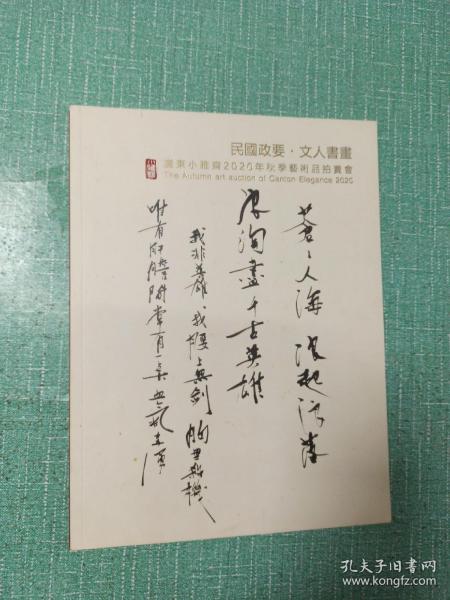 民國政要·文人書畫
廣東小雅齋2020年秋季藝術品拍賣會
The Autumn art auction of Canton Elegance 2020
蒼、人海 浪起浪落
浪淘盡千古英雄
我非英雄、我腰上無劍 胸里無機
唯有
孔夫子旧书网
www.kongfz.com